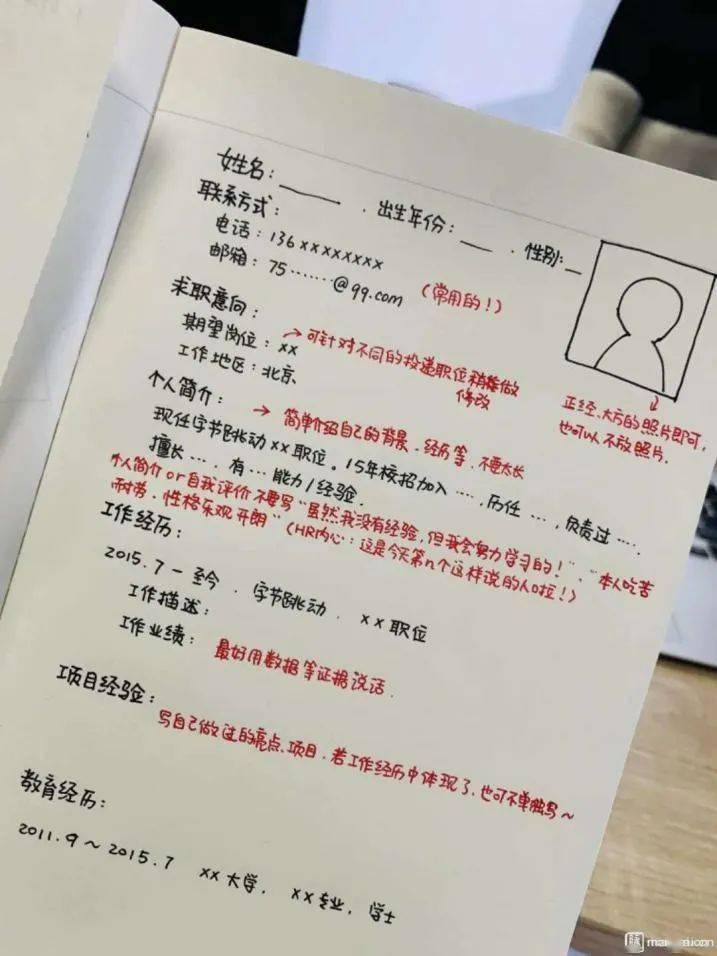 姓名：____ . 出生年份：___ . 性别：_
联系方式：
电话：136xxxxxxxx
邮箱：75.......@qq.com （常用的！）
求职意向：
期望岗位：xx →可针对不同的投递职位稍做
修改
工作地区：北京
正经、大方的照片即可，
也可以不放照片.
个人简介：
→ 简单介绍自己的背景、经历等，不要太长
现任字节跳动xx职位。15年校招加入…，历任…，负责过….
擅长…. 有…能力/经验.
个人简介or自我评价不要写“虽然我没有经验，但我会努力学习的！”、“本人吃苦
耐劳，性格乐观开朗”（HR内心：这是今天第n个这样说的人啦！）
工作经历：
2015.7－至今 . 字节跳动 . xx职位
工作描述：
工作业绩： 最好用数据等证据说话.
项目经验：
写自己做过的亮点项目，若工作经历中体现了，也可不单独写~
教育经历：
2011.9～2015.7 xx大学， xx专业，学士